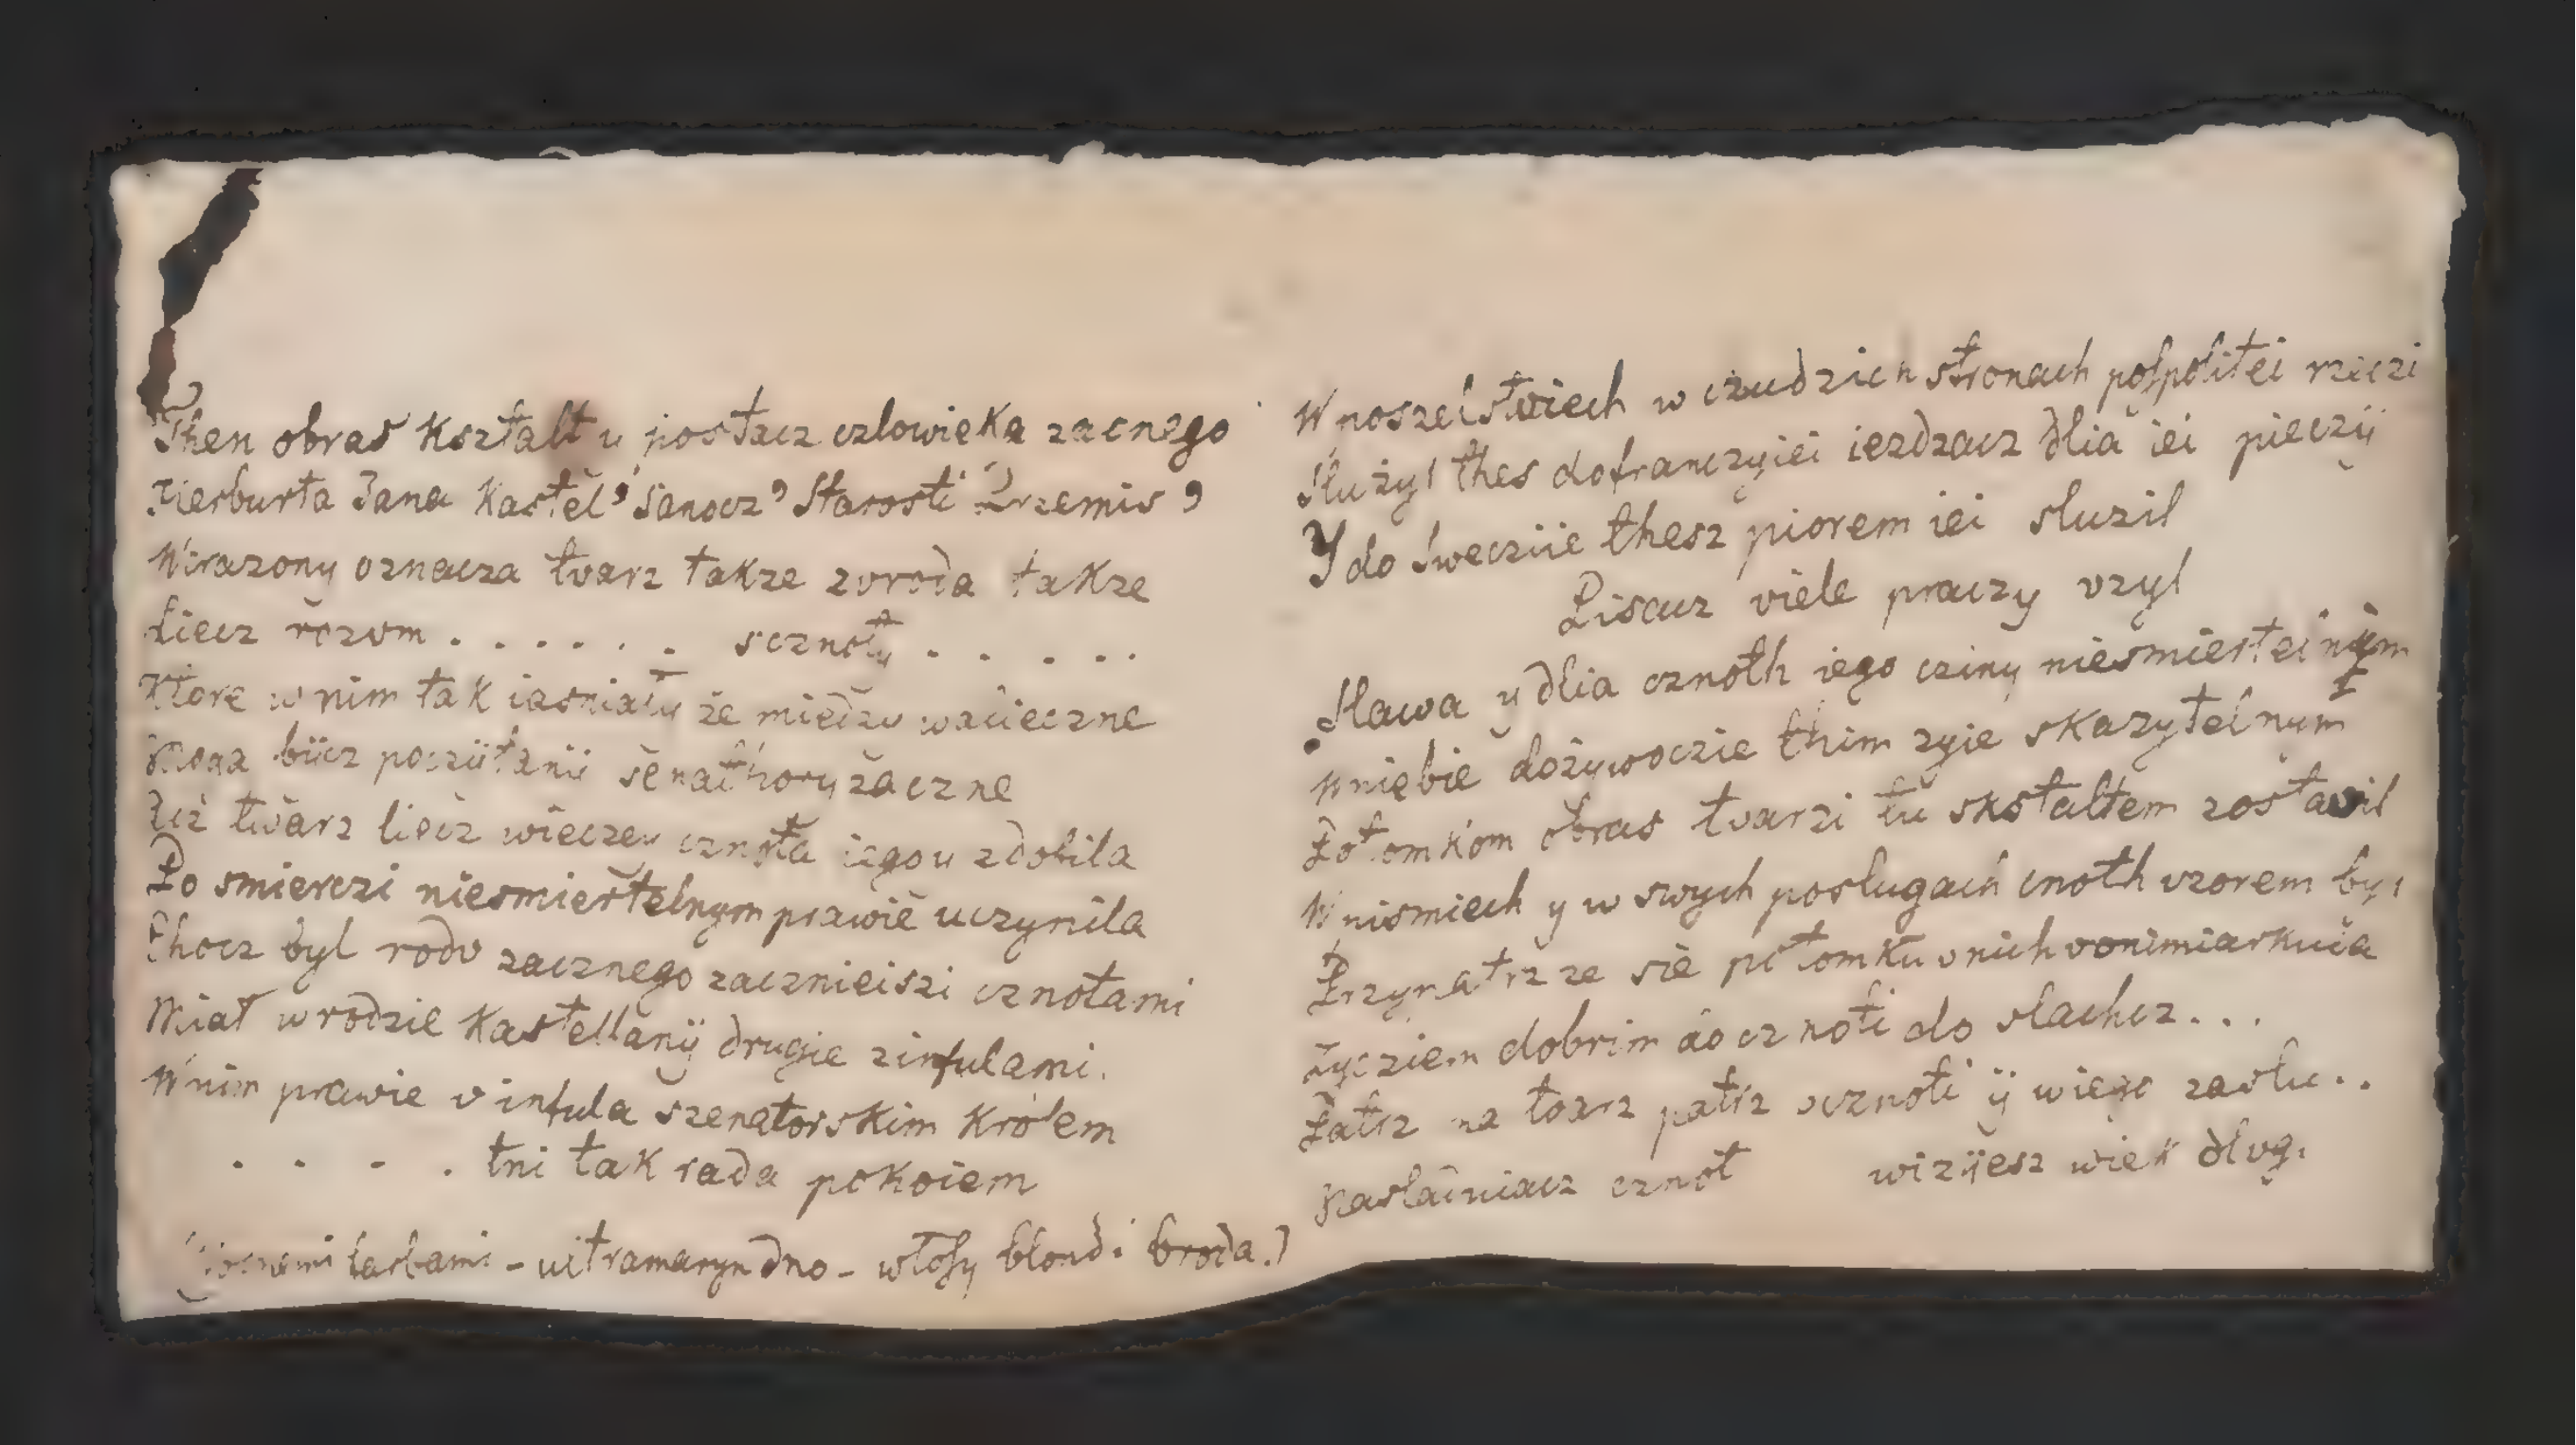 Then obras kształt y postacz czlowieka zacnego
Herburta Jana Kastel' Sanocz' Starosti Przemis'
Wirazony oznacza tvarz takze zvroda takze
Liecz rozvm . . . . . . scznoty . . . . .
Ktore w nim tak iasniały że miedzy walieczne
Moga biicz pocziitanii senathory zaczne
Acz twarz liecz wieczey cznota iego uzdobila
Po smierczi niesmiertelnym prawie uczynila
Chocz byl rodv zacznego zacznieiszi cznotami
Miał w rodzie Kastellanÿ drugie zinfulami.
W nim prawie v infula szenatorskim Królem
. . . . tni tak rada pokoiem
farbami - ultramaryn dno - włosy blond i broda.)
W poszelstwiech w czudzich stronach pospolitei rzeczi
Służyl thes dofranczyiei iezdzacz dlia iei pieczÿ
Y do Swecziie thesz piorem iei sluzil
Pisacz viele praczy vzyl
Slawa y dlia cznoth iego cziny niesmiertelnym
W niebie dożywoczie thim zyie skazytelnym
Potomkom obras tvarzi tu skstaltem zostawil
W pismiech y w swych poslugach cnoth vzorem byl
Przypatrz ze sie potomku vnich
Zycziem dobrim do cznoti do slachcz...
Patrz na tvarz patrz scznoti ÿ wiego zaslu..
Nasladuiacz cznot wizÿesz wiek dlvg.